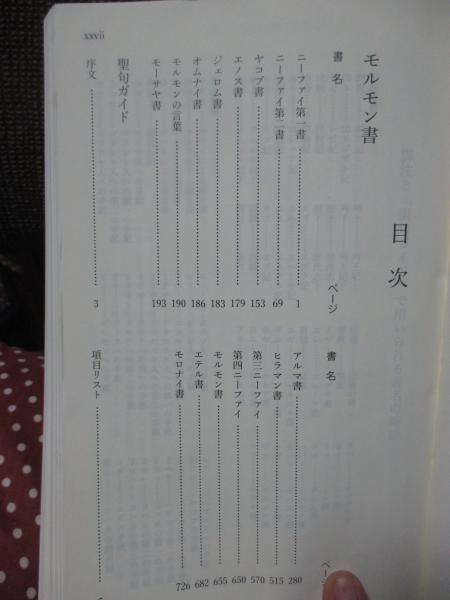 xxvii
目次
モルモン書
書名 ページ
ニーファイ第一書 1
ニーファイ第二書 69
ヤコブ書 153
エノス書 179
ジェロム書 183
オムナイ書 186
モルモンの言葉 190
モーサヤ書 193
書名 ページ
アルマ書 280
ヒラマン書 515
第三ニーファイ 570
第四ニーファイ 650
モルモン書 655
エテル書 682
モロナイ書 726
聖句ガイド
序文 3
項目リスト